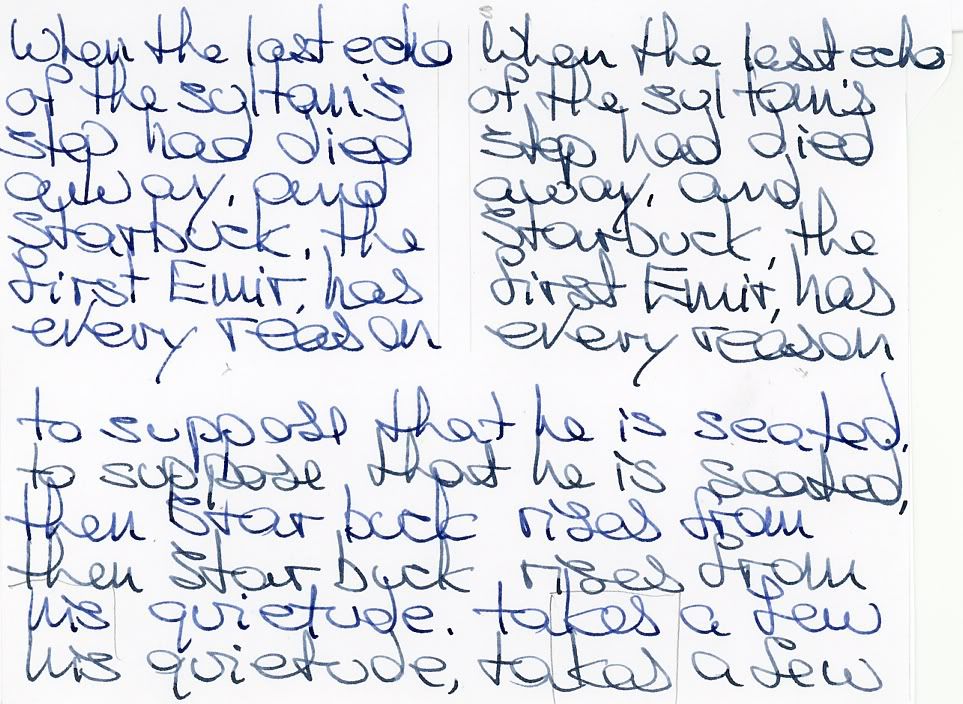 When the last echo
of the sultan's
step had died
away, and
Starbuck, the
first Emir, has
every reason
When the last echo
of the sultan's
step had died
away, and
Starbuck, the
first Emir, has
every reason
to suppose that he is seated,
to suppose that he is seated,
then Starbuck rises from
then Starbuck rises from
his quietude. takes a few
his quietude, takes a few